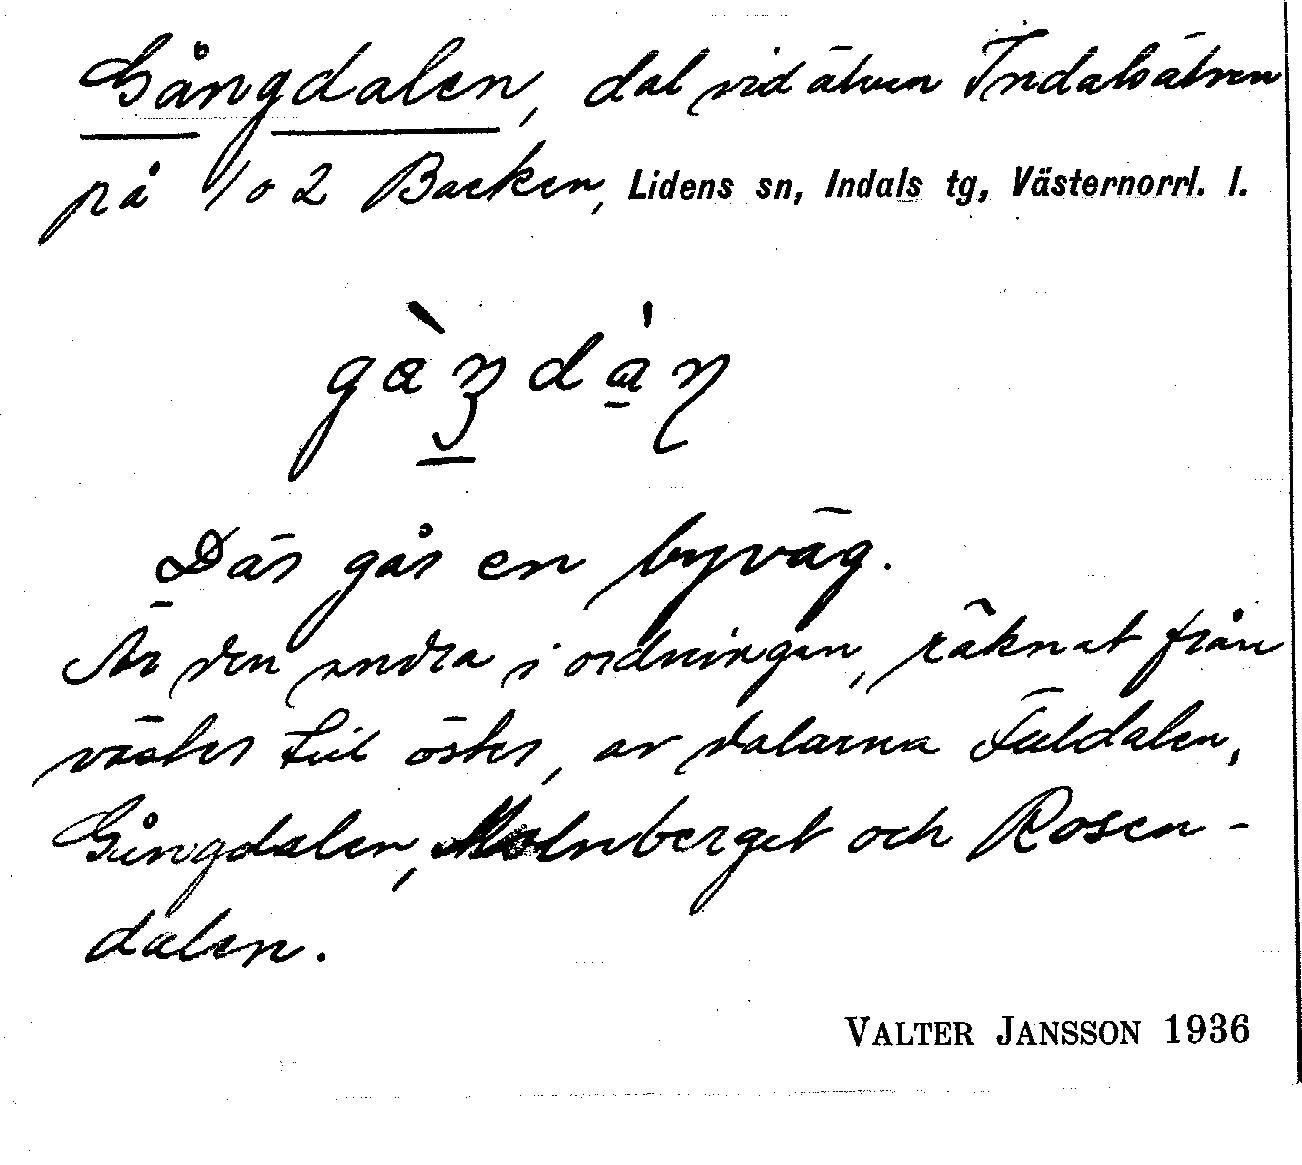 Gångdalen, dal vid älven Indalsälven
på 1 o 2 Backen, Lidens sn, Indals tg, Västernorrl. l.
Där går en byväg.
Är den andra i ordningen, räknat från
väster till öster, av dalarna Fäldalen,
Gångdalen, Kvarnberget och Rosen-
dalen.
VALTER JANSSON 1936